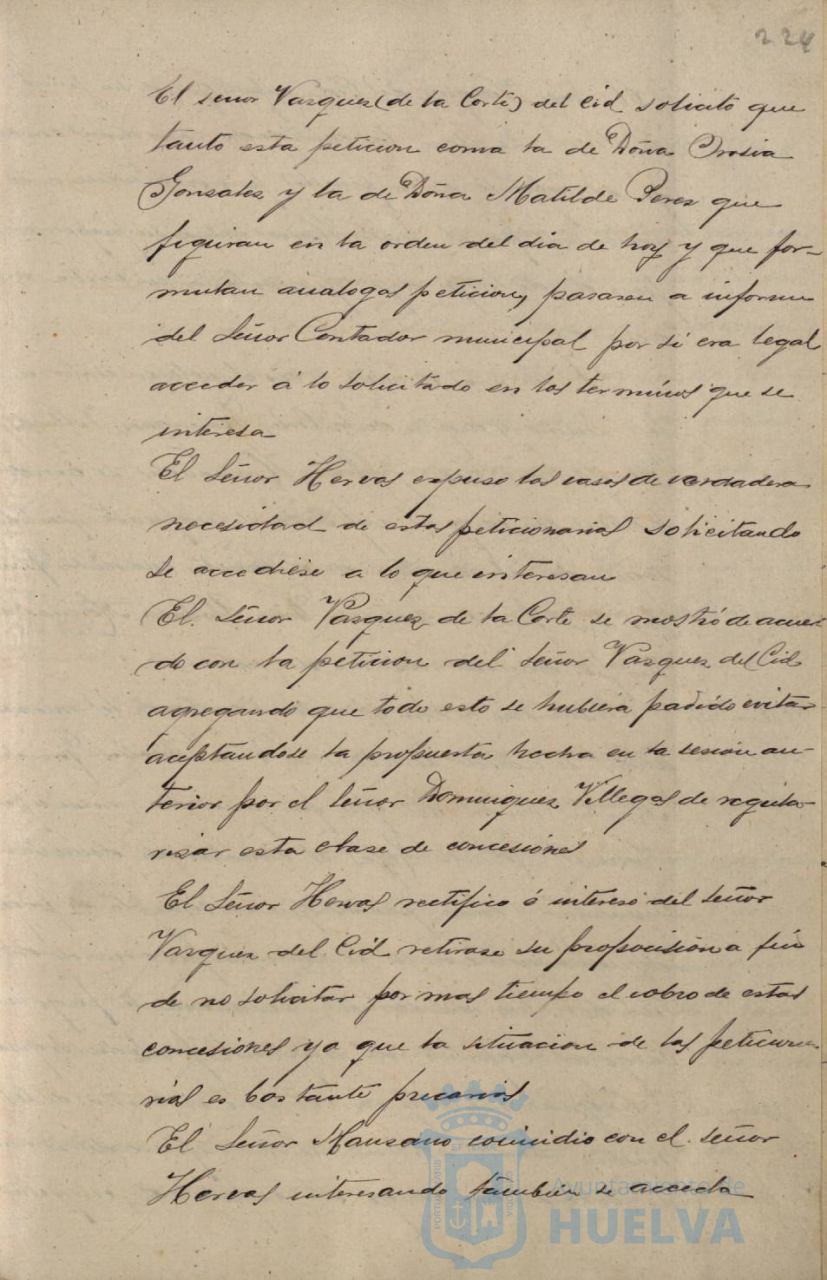 224
El señor Vazquez (de la Corte) del Cid solicitó que
tanto esta peticion como la de Doña Orosia
Gonzalez y la de Doña Matilde Perez que
figuran en la orden del dia de hoy y que for-
mulan analogas peticion, pasasen a informe
del Señor Contador municipal por si era legal
acceder á lo solicitado en los terminos que se
interesa
El Señor Hervas expuso los casos de verdadera
necesidad de estas peticionarias solicitando
se accediese a lo que interesan
El Señor Vazquez de la Corte se mostró de acuer-
do con la peticion del Señor Vazquez del Cid
agregando que todo esto se hubiera podido evitar
aceptandose la propuesta hecha en la sesion an-
terior por el Señor Dominguez Villegas de regula-
rizar esta clase de concesiones
El Señor Hervas rectifico é intereso del señor
Vazquez del Cid retirase su proposicion a fin
de no solicitar por mas tiempo el cobro de estas
concesiones ya que la situacion de las peticiona-
rias es bastante precaria
El Señor Manzano coincidio con el señor
Hervas interesando tambien se acceda
Ayuntamiento de
HUELVA